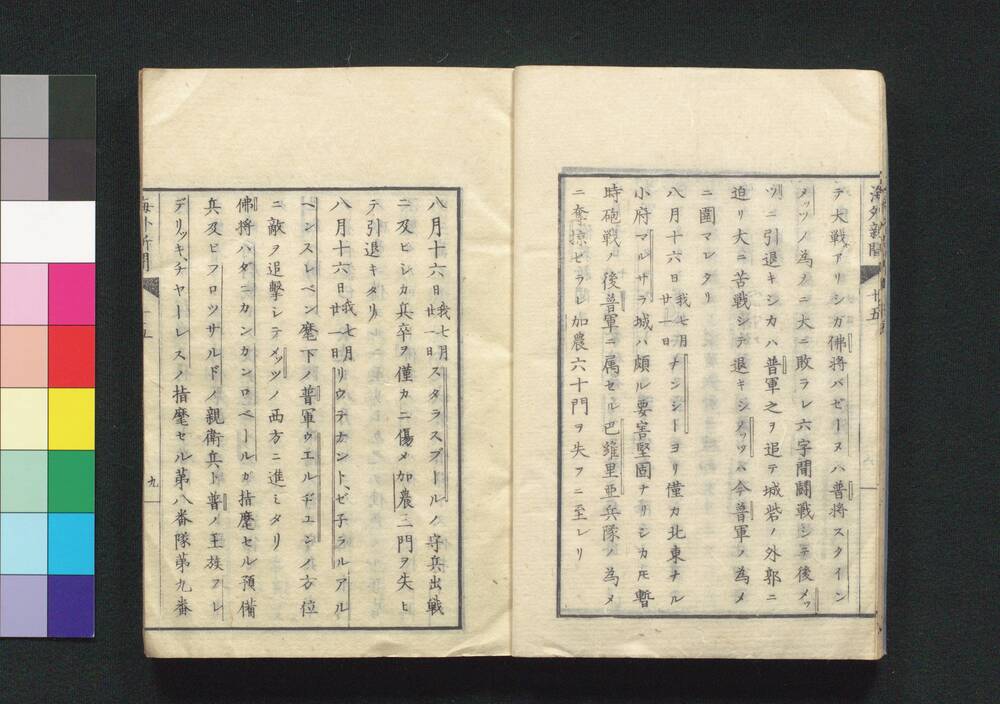 海外新聞 廿五
テ大戰アリシガ佛將バゼーヌハ普將スタイン
メッツノ為メニ大ニ敗ラレ六字間鬪戰シテ後メッ
ツニ引退キシカハ普軍之ヲ追テ城砦ノ外郭ニ
迫リ大ニ苦戰シテ退キシメッツハ今普軍ノ為メ
ニ圍マレタリ
八月十六日我七月廿一日ナンシーヨリ僅カ北東ナル
小府マルサラ城ハ頗ル要害堅固ナリシカ𪜈暫
時砲戰ノ後普軍ニ属セル巴維里亜兵隊ノ為メ
ニ奪掠セラレ加農六十門ヲ失フニ至レリ
八月十六日我七月廿一日スタラスブールノ守兵出戰
ニ及ビシカ兵卒ヲ僅カニ傷メ加農三門ヲ失ヒ
テ引退キタリ
八月十六日我七月廿一日リウテナント、ゼ子ラルアル
ベンスレベン麾下ノ普軍ウエルヂュンノ方位
ニ敵ヲ追擊シテメッツノ西方ニ進ミタリ
佛將ハダニカンカンロベールガ指麾セル預備
兵及ビフロッサルドノ親衛兵ト普ノ王族フレ
デリッキ、チャーレスノ指麾セル第八番隊第九番
海外新聞 廿五 九